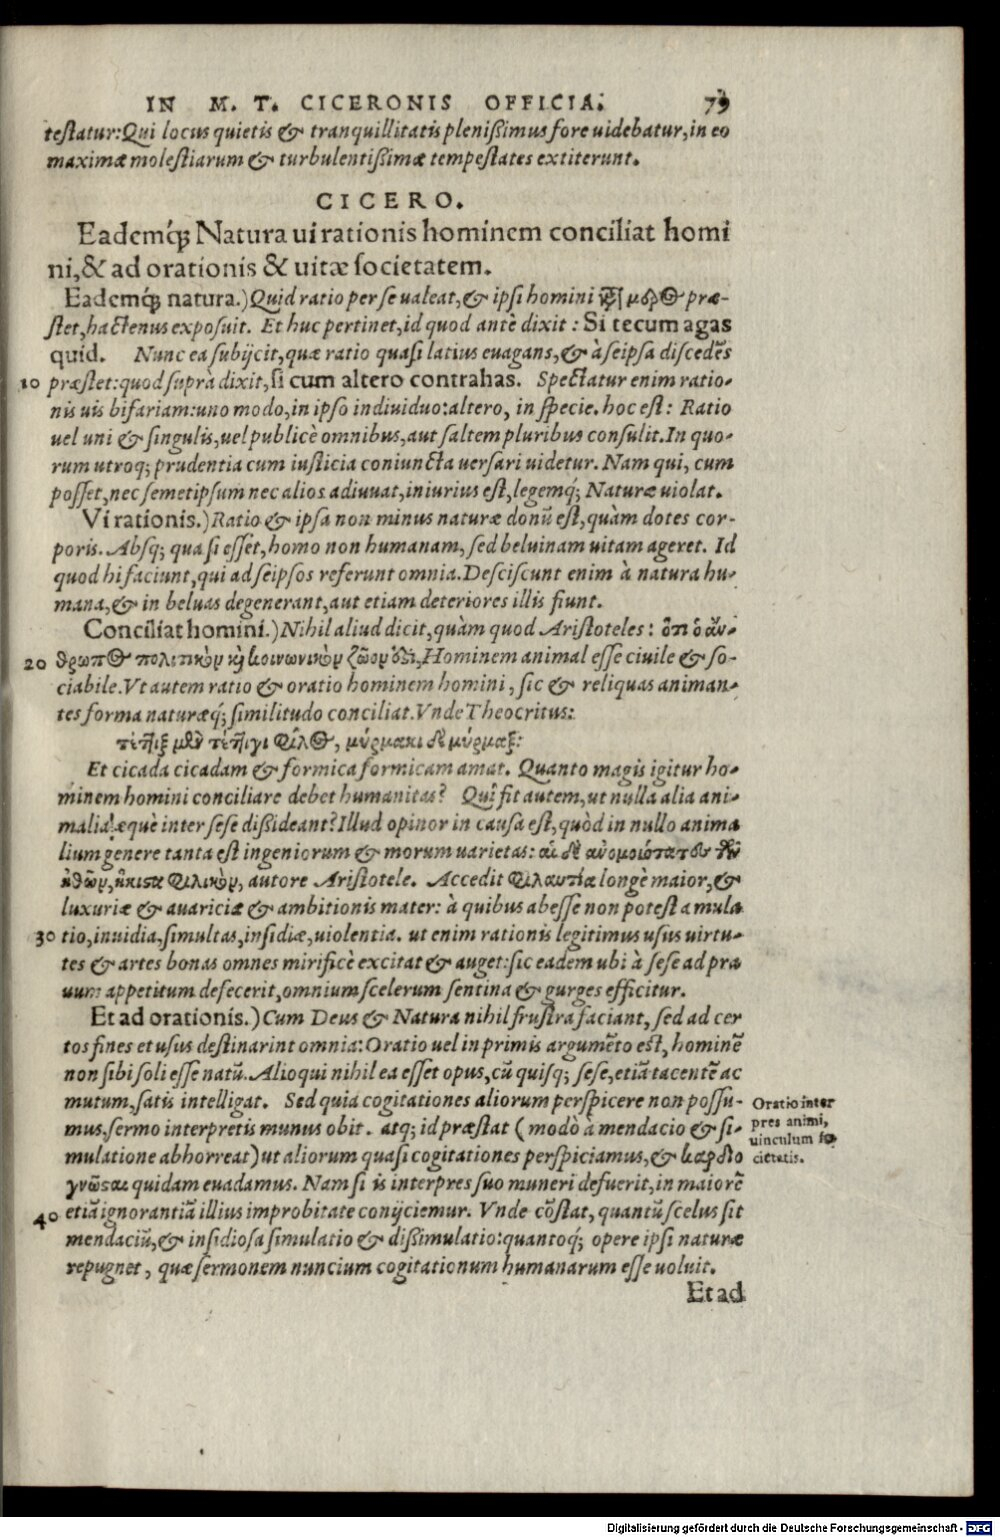 IN M. T. CICERONIS OFFICIA. 79
testatur: Qui locus quietis & tranquillitatis plenißimus fore uidebatur, in eo
maximæ molestiarum & turbulentißimæ tempestates extiterunt.
CICERO.
Eademq́ꝫ Natura ui rationis hominem conciliat homi
ni, & ad orationis & uitæ societatem.
Eademq́ꝫ natura.) Quid ratio per se ualeat, & ipsi homini præ-
stet, hactenus exposuit. Et huc pertinet, id quod antè dixit: Si tecum agas
quid. Nunc ea subijcit, quæ ratio quasi latius euagans, & à seipsa discedẽs
10 præstet: quod suprà dixit, si cum altero contrahas. Spectatur enim ratio-
nis uis bifariam: uno modo, in ipso indiuiduo: altero, in specie. hoc est: Ratio
uel uni & singulis, uel publicè omnibus, aut saltem pluribus consulit. In quo-
rum utroq; prudentia cum iusticia coniuncta uersari uidetur. Nam qui, cum
posset, nec semetipsum nec alios adiuuat, iniurius est, legemq́; Naturæ uiolat.
Vi rationis.) Ratio & ipsa non minus naturæ donũ est, quàm dotes cor-
poris. Absq; qua si esset, homo non humanam, sed beluinam uitam ageret. Id
quod hi faciunt, qui ad seipsos referunt omnia. Desciscunt enim à natura hu-
mana, & in beluas degenerant, aut etiam deteriores illis fiunt.
Conciliat homini.) Nihil aliud dicit, quàm quod Aristoteles: ὅτι ὁ ἄν-
20 θρωπος πολιτικὸν κὶ κοινωνικὸν ζῶον ὅζι, Hominem animal esse ciuile & so-
ciabile. Vt autem ratio & oratio hominem homini, sic & reliquas animan-
tes forma naturæq́; similitudo conciliat. Vnde Theocritus:
τέττιξ μὲν τέττιγι φίλος, μύρμακι δὲ μύρμαξ:
Et cicada cicadam & formica formicam amat. Quanto magis igitur ho-
minem homini conciliare debet humanitas? Quî fit autem, ut nulla alia ani-
malia æquè inter sese dißideant? Illud opinor in causa est, quòd in nullo anima
lium genere tanta est ingeniorum & morum uarietas: αἱ δὲ ἀνομοιότατοι τῶν
ἠθῶν, ἥκιστα φιλικὸν, autore Aristotele. Accedit φιλαυτία longè maior, &
luxuriæ & auariciæ & ambitionis mater: à quibus abesse non potest æmula
30 tio, inuidia, simultas, insidiæ, uiolentia. ut enim rationis legitimus usus uirtu-
tes & artes bonas omnes mirificè excitat & auget: sic eadem ubi à sese ad pra
uum appetitum defecerit, omnium scelerum sentina & gurges efficitur.
Et ad orationis.) Cum Deus & Natura nihil frustra faciant, sed ad cer
tos fines et usus destinarint omnia: Oratio uel in primis argumẽto est, hominẽ
non sibi soli esse natũ. Alioqui nihil ea esset opus, cũ quisq; sese, etiã tacentẽ ac
mutum, satis intelligat. Sed quia cogitationes aliorum perspicere non possu-
mus, sermo interpretis munus obit. atq; id præstat (modò à mendacio & si-
mulatione abhorreat) ut aliorum quasi cogitationes perspiciamus, & καρδιο
γνῶσαι quidam euadamus. Nam si is interpres suo muneri defuerit, in maiorẽ
40 etiã ignorantiã illius improbitate conijciemur. Vnde cõstat, quantũ scelus sit
mendaciũ, & insidiosa simulatio & dißimulatio: quantoq́; opere ipsi naturæ
repugnet, quæ sermonem nuncium cogitationum humanarum esse uoluit.
Oratio inter
pres animi,
uinculum so
cietatis.
Et ad
Digitalisierung gefördert durch die Deutsche Forschungsgemeinschaft - DFG